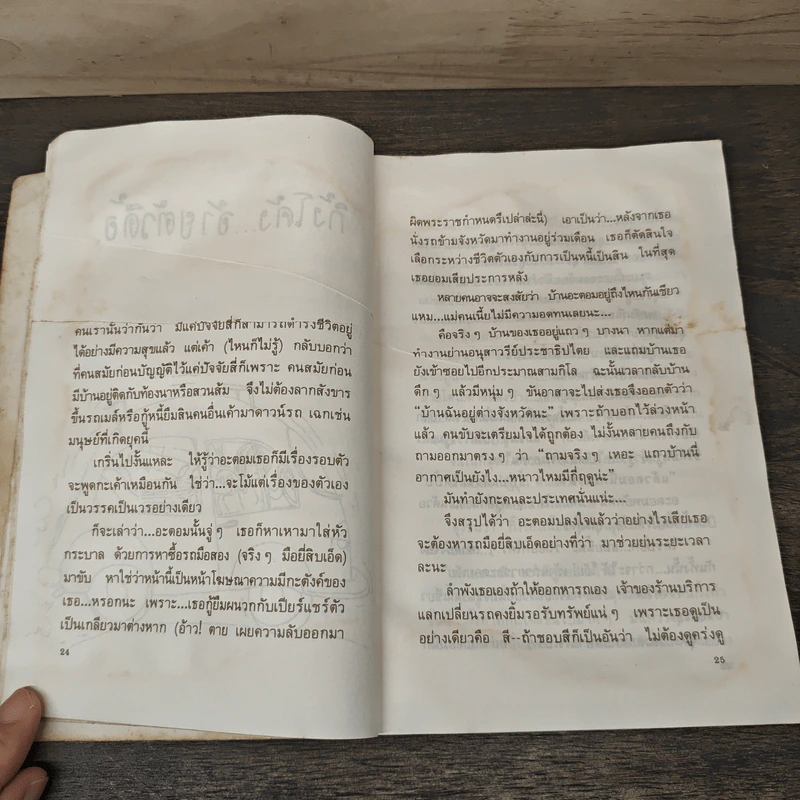 คนเรานั้นว่ากันว่า มีแค่ปัจจัยสี่ก็สามารถดำรงชีวิตอยู่
ได้อย่างมีความสุขแล้ว แต่เค้า (ไหนก็ไม่รู้) กลับบอกว่า
ที่คนสมัยก่อนบัญญัติไว้แค่ปัจจัยสี่ก็เพราะ คนสมัยก่อน
มีบ้านอยู่ติดกับท้องนาหรือสวนส้ม จึงไม่ต้องลากสังขาร
ขึ้นรถเมล์หรือกู้หนี้ยืมสินคนอื่นเค้ามาดาวน์รถ เฉกเช่น
มนุษย์ที่เกิดยุคนี้
เกริ่นไปงั้นแหละ ให้รู้ว่าอะตอมเธอก็มีเรื่องรอบตัว
จะพูดกะเค้าเหมือนกัน ใช่ว่า...จะโม้แต่เรื่องของตัวเอง
เป็นวรรคเป็นเวรอย่างเดียว
ก็จะเล่าว่า...อะตอมนั้นจู่ๆ เธอก็หาเหามาใส่หัว
กระบาล ด้วยการหาซื้อรถมือสอง (จริงๆ มือยี่สิบเอ็ด)
มาขับ หาใช่ว่าหน้านี้เป็นหน้าโฆษณาความมีกะตังค์ของ
เธอ...หรอกนะ เพราะ...เธอกู้ยืมผนวกกับเปียร์แชร์ตัว
เป็นเกลียวมาต่างหาก (อ้าว! ตาย เผยความลับออกมา
24
ผิดพระราชกำหนดรึเปล่าล่ะนี่) เอาเป็นว่า...หลังจากเธอ
นั่งรถข้ามจังหวัดมาทำงานอยู่ร่วมเดือน เธอก็ตัดสินใจ
เลือกระหว่างชีวิตตัวเองกับการเป็นหนี้เป็นสิน ในที่สุด
เธอยอมเสียประการหลัง
หลายคนอาจจะสงสัยว่า บ้านอะตอมอยู่ถึงไหนกันเชียว
แหม...แม่คนเนี้ยไม่มีความอดทนเลยนะ...
คือจริงๆ บ้านของเธออยู่แถวๆ บางนา หากแต่มา
ทำงานย่านอนุสาวรีย์ประชาธิปไตย และแถมบ้านเธอ
ยังเข้าซอยไปอีกประมาณสามกิโล ฉะนั้นเวลากลับบ้าน
ดึกๆ แล้วมีหนุ่มๆ ขันอาสาจะไปส่งเธอจึงออกตัวว่า
“บ้านฉันอยู่ต่างจังหวัดนะ” เพราะถ้าบอกไว้ล่วงหน้า
แล้ว คนขับจะเตรียมใจได้ถูกต้อง ไม่งั้นหลายคนถึงกับ
ถามออกมาตรงๆ ว่า “ถามจริงๆ เหอะ แถวบ้านนี่
อากาศเป็นยังไง...หนาวไหมมีกี่ฤดูน่ะ”
มันทำยังกะคนละประเทศนั่นแน่ะ...
จึงสรุปได้ว่า อะตอมปลงใจแล้วว่าอย่างไรเสียเธอ
จะต้องหารถมือยี่สิบเอ็ดอย่างที่ว่า มาช่วยย่นระยะเวลา
ละนะ
ลำพังเธอเองถ้าให้ออกหารถเอง เจ้าของร้านบริการ
แลกเปลี่ยนรถคงยิ้มรอรับทรัพย์แน่ๆ เพราะเธอดูเป็น
อย่างเดียวคือ สี--ถ้าชอบสีก็เป็นอันว่า ไม่ต้องดูคร่งดู
25